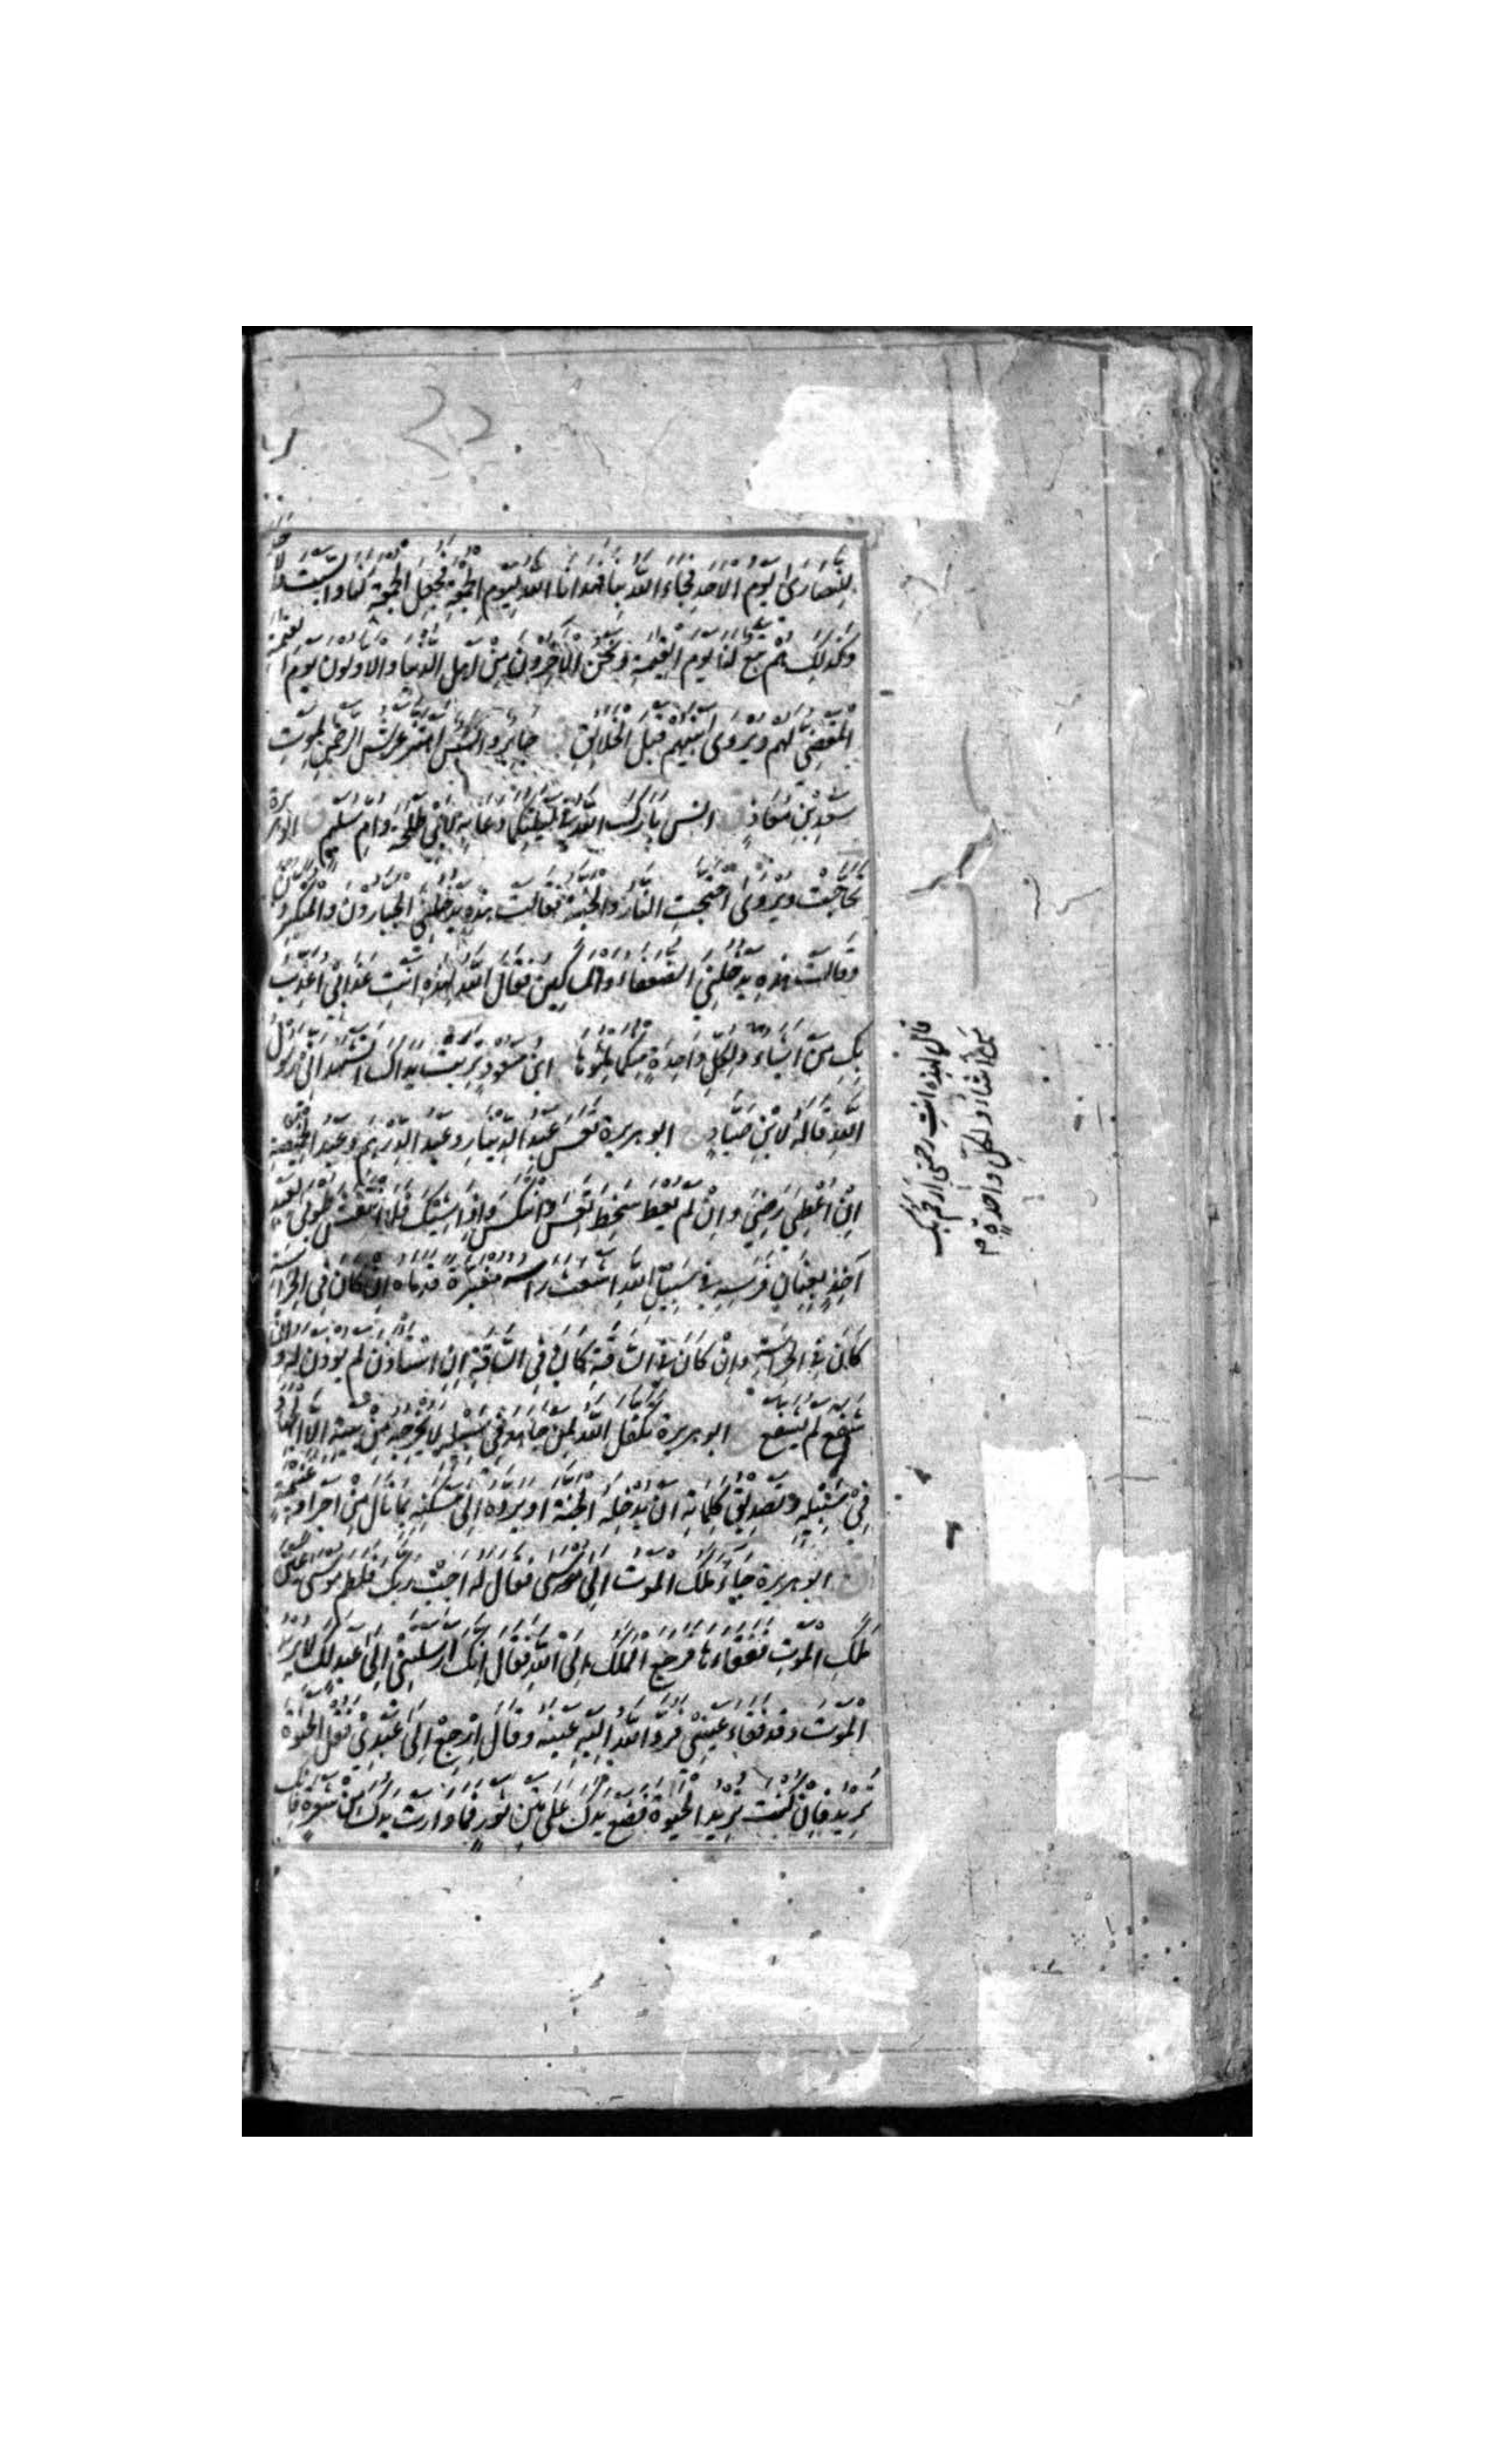 لِلنصارىٰ يوم الاحدِ فجاءَ اللّه بنا فهدانا اللّه ليوم الجمعة فجعل الجمعة والسبت والاحد
وكذلك هم تبع لنا يوم القيمة ونحن الاخرون من اهل الدنيا والاولون يوم القيمة
المقضى لهم ويروىٰ بينهم قبل الخلائق جابر وانس اهتز عرش الرحمن لموتِ
سعدِ بن معاذٍ انس بارك اللّه فى ليلتكما دعا به لابى طلحة وام سليم ابو هريرة
تحاجت ويروىٰ احتجت النار والجنة فقالت هذه يدخلنى الجبارون والمتكبرون
وقالت هذه يدخلنى الضعفاء والمساكين فقال اللّه لهذه انتِ عذابى اعذب
بكِ من اشاء ولكل واحدةٍ منكما ملؤها ابن مسعود تربت يداك اتشهد انى رسول
اللّه قاله لابن صيادٍ ابو هريرة تعس عبد الدينار وعبد الدرهم وعبد الخميصة
ان اعطى رضى وان لم يعط سخط تعس وانتكس واذا شيك فلا انتقش طوبىٰ لعبد
آخذٍ بعنان فرسه فى سبيل اللّه اشعث راسه مغبرة قدماه ان كان فى الحراسة
كان فى الحراسة وان كان فى الساقة كان فى الساقة ان استاذن لم يؤذن له وان
شفع لم يشفع ابو هريرة تكفل اللّه لمن جاهد فى سبيله لا يخرجه من بيته الا الجهاد
فى سبيله وتصديق كلماته ان يدخله الجنة او يرده الى مسكنه بما نال من اجر او غنيمة
ابو هريرة جاء ملك الموت الى موسى فقال له اجب ربك فلطم موسى عين
ملك الموت ففقاءها فرجع الملك الى اللّه فقال انك ارسلتنى الى عبد لك لا يريد
الموت وقد فقاء عينى فرد اللّه اليه عينه وقال ارجع الى عبدى فقل الحيوة
تريد فان كنت تريد الحيوة فضع يدك على متن ثور فما وارت يدك من شعرةٍ فانك
قال لهذه انتِ رحمتى ارحم بكِ
من اشاء ولكل واحدةٍ م